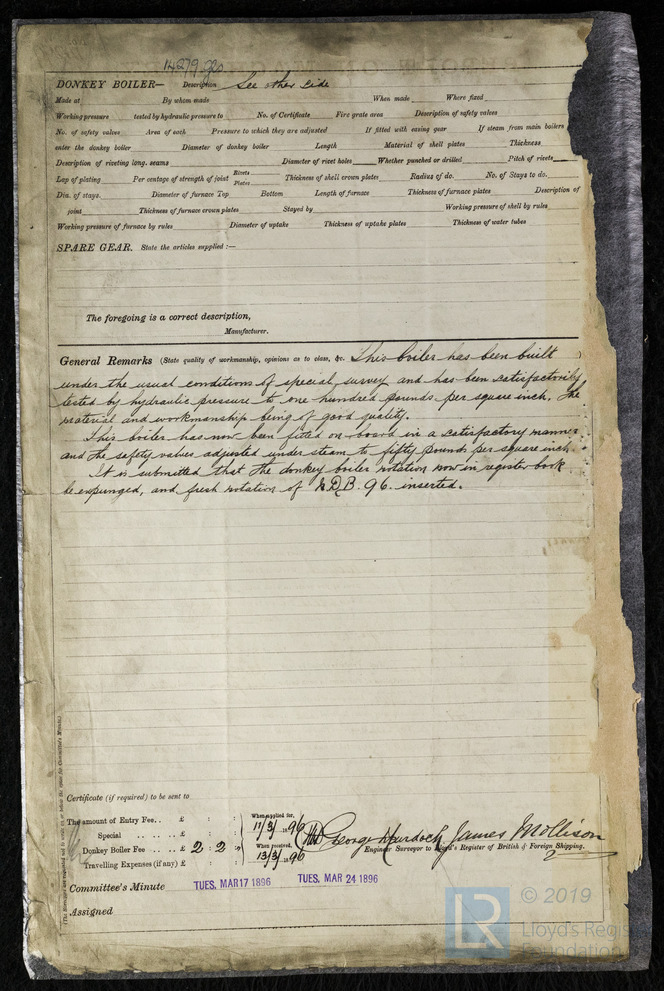 14279 Gls
DONKEY BOILER— Description See other side
Made at By whom made When made Where fixed
Working pressure tested by hydraulic pressure to No. of Certificate Fire grate area Description of safety valves
No. of safety valves Area of each Pressure to which they are adjusted If fitted with easing gear If steam from main boilers
enter the donkey boiler Diameter of donkey boiler Length Material of shell plates Thickness
Description of riveting long. seams Diameter of rivet holes Whether punched or drilled Pitch of rivets
Lap of plating Per centage of strength of joint Rivets Plates Thickness of shell crown plates Radius of do. No. of Stays to do.
Dia. of stays. Diameter of furnace Top Bottom Length of furnace Thickness of furnace plates Description of
joint Thickness of furnace crown plates Stayed by Working pressure of shell by rules
Working pressure of furnace by rules Diameter of uptake Thickness of uptake plates Thickness of water tubes
SPARE GEAR. State the articles supplied :—
The foregoing is a correct description,
Manufacturer.
General Remarks (State quality of workmanship, opinions as to class, &c. This boiler has been built
under the usual conditions of special survey and has been satisfactorily
tested by hydraulic pressure to one hundred pounds per square inch, the
material and workmanship being of good quality.
This boiler has now been fitted on board in a satisfactory manner
and the safety valves adjusted under steam to fifty pounds per square inch
It is submitted that the donkey boiler notation now in register book
be expunged, and fresh notation of N.D.B. 96. inserted.
Certificate (if required) to be sent to
The amount of Entry Fee.. £ : : When applied for,
11/3/1896
Special .. .. .. £ : :
Donkey Boiler Fee .. .. £ 2 : 2 : When received,
Travelling Expenses (if any) £ : : 13/3/1896
George Murdoch James Mollison
Engineer Surveyor to Lloyd's Register of British & Foreign Shipping.
Committee's Minute TUES. MAR 17 1896 TUES. MAR 24 1896
Assigned
LR © 2019
Lloyd's Register
Foundation